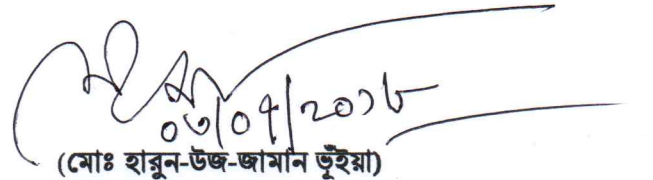 ০৩/০৭/২০১৮
(মোঃ হারুন-উজ-জামান ভূঁইয়া)